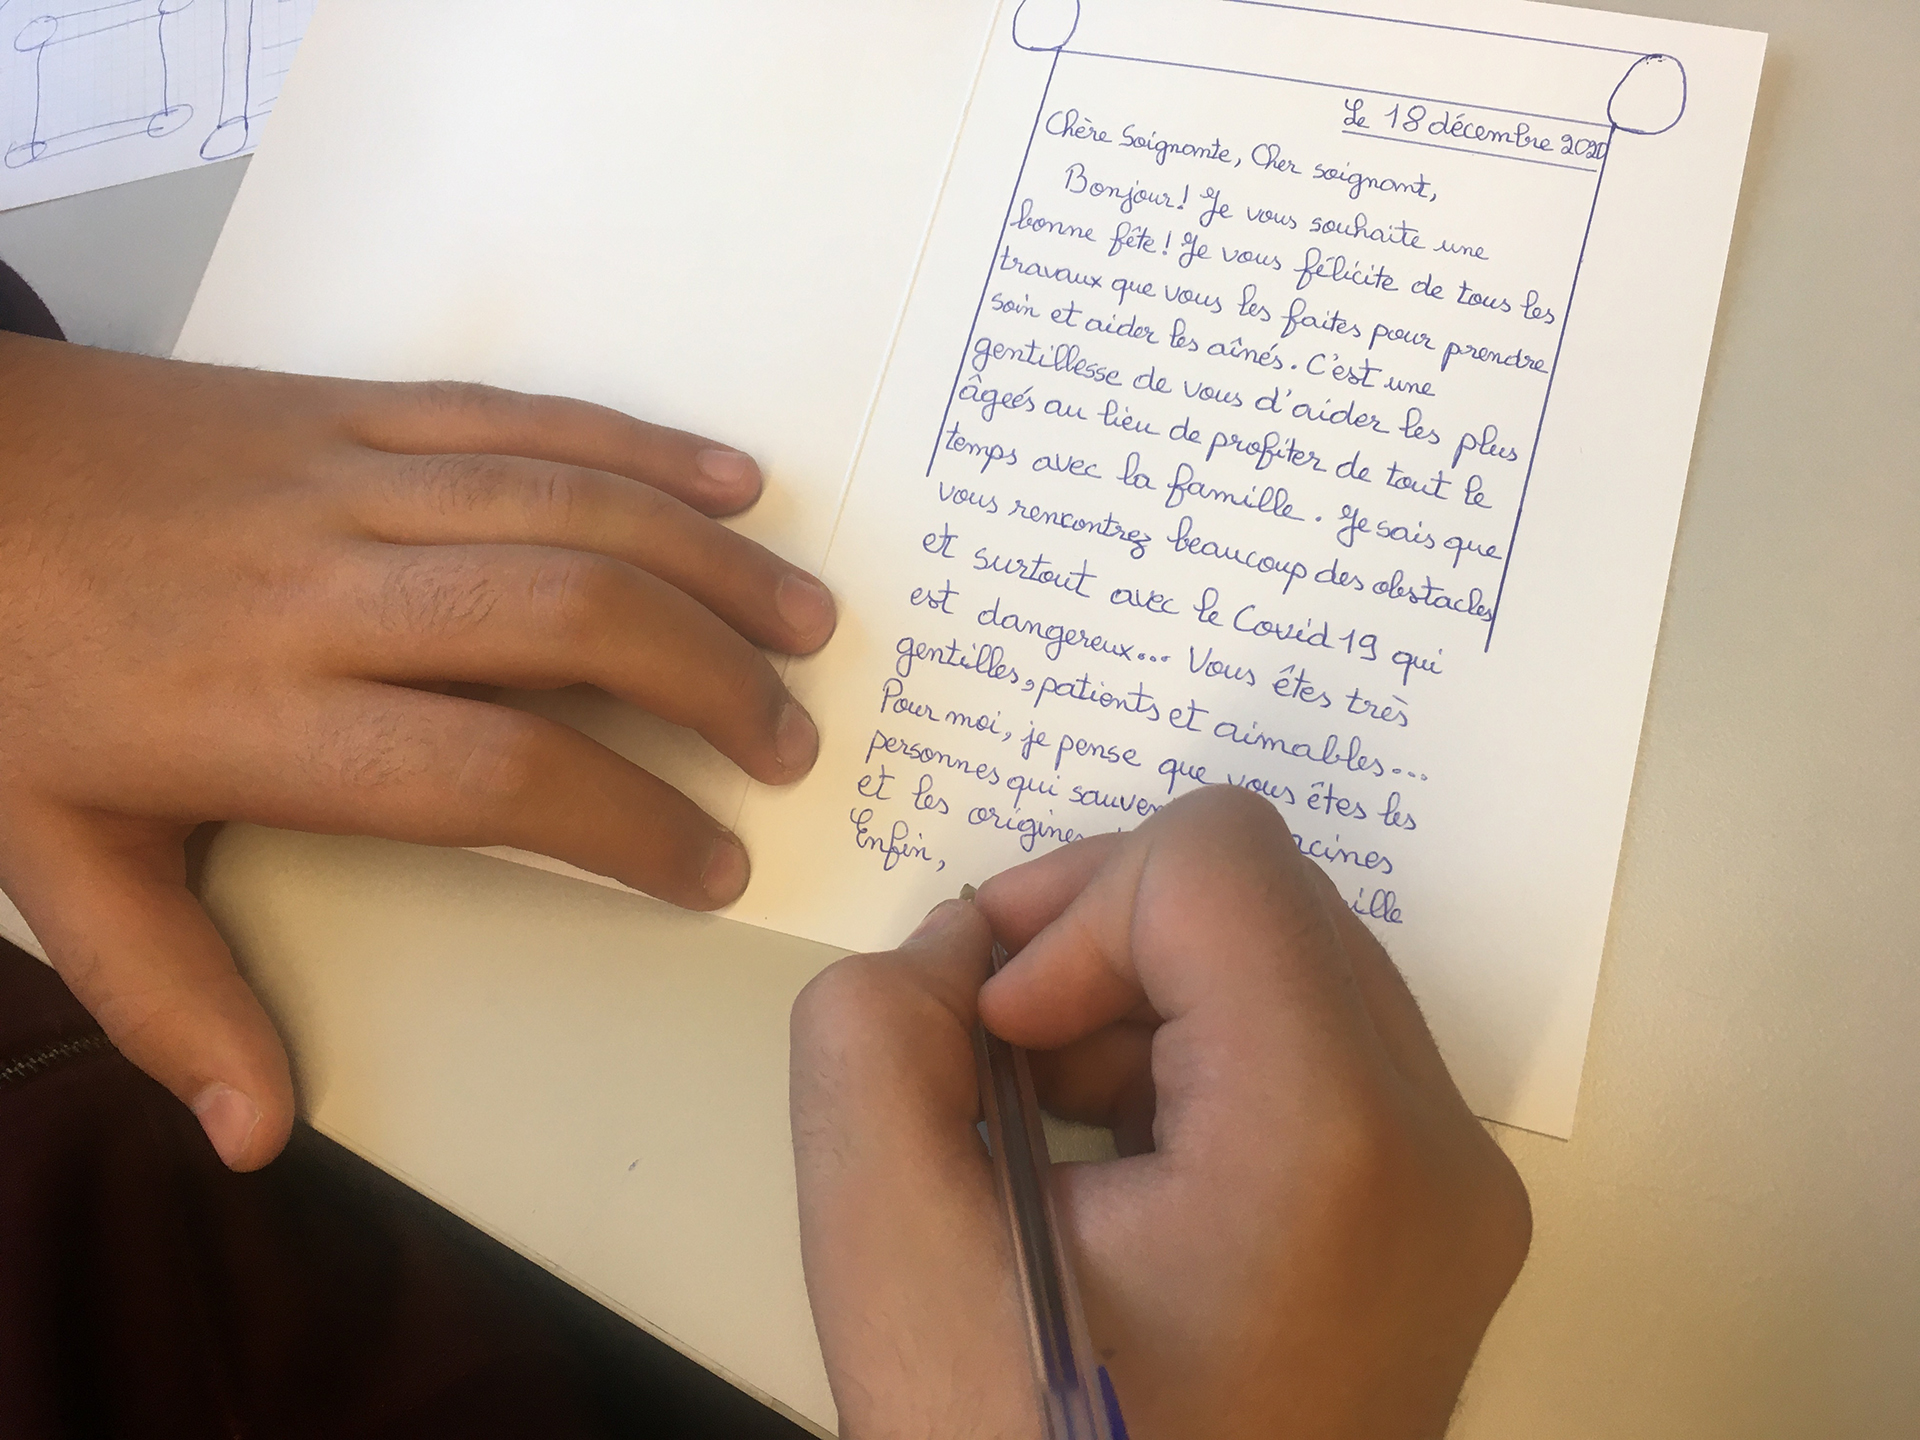 Le 18 décembre 2020
Chère Soignante, Cher soignant,
Bonjour! Je vous souhaite une
bonne fête! Je vous félicite de tous les
travaux que vous les faites pour prendre
soin et aider les aînés. C'est une
gentillesse de vous d'aider les plus
âgeés au lieu de profiter de tout le
temps avec la famille. Je sais que
vous rencontrez beaucoup des obstacles
et surtout avec le Covid 19 qui
est dangereux... Vous êtes très
gentilles, patients et aimables...
Pour moi, je pense que vous êtes les
personnes qui
et les origines
Enfin,